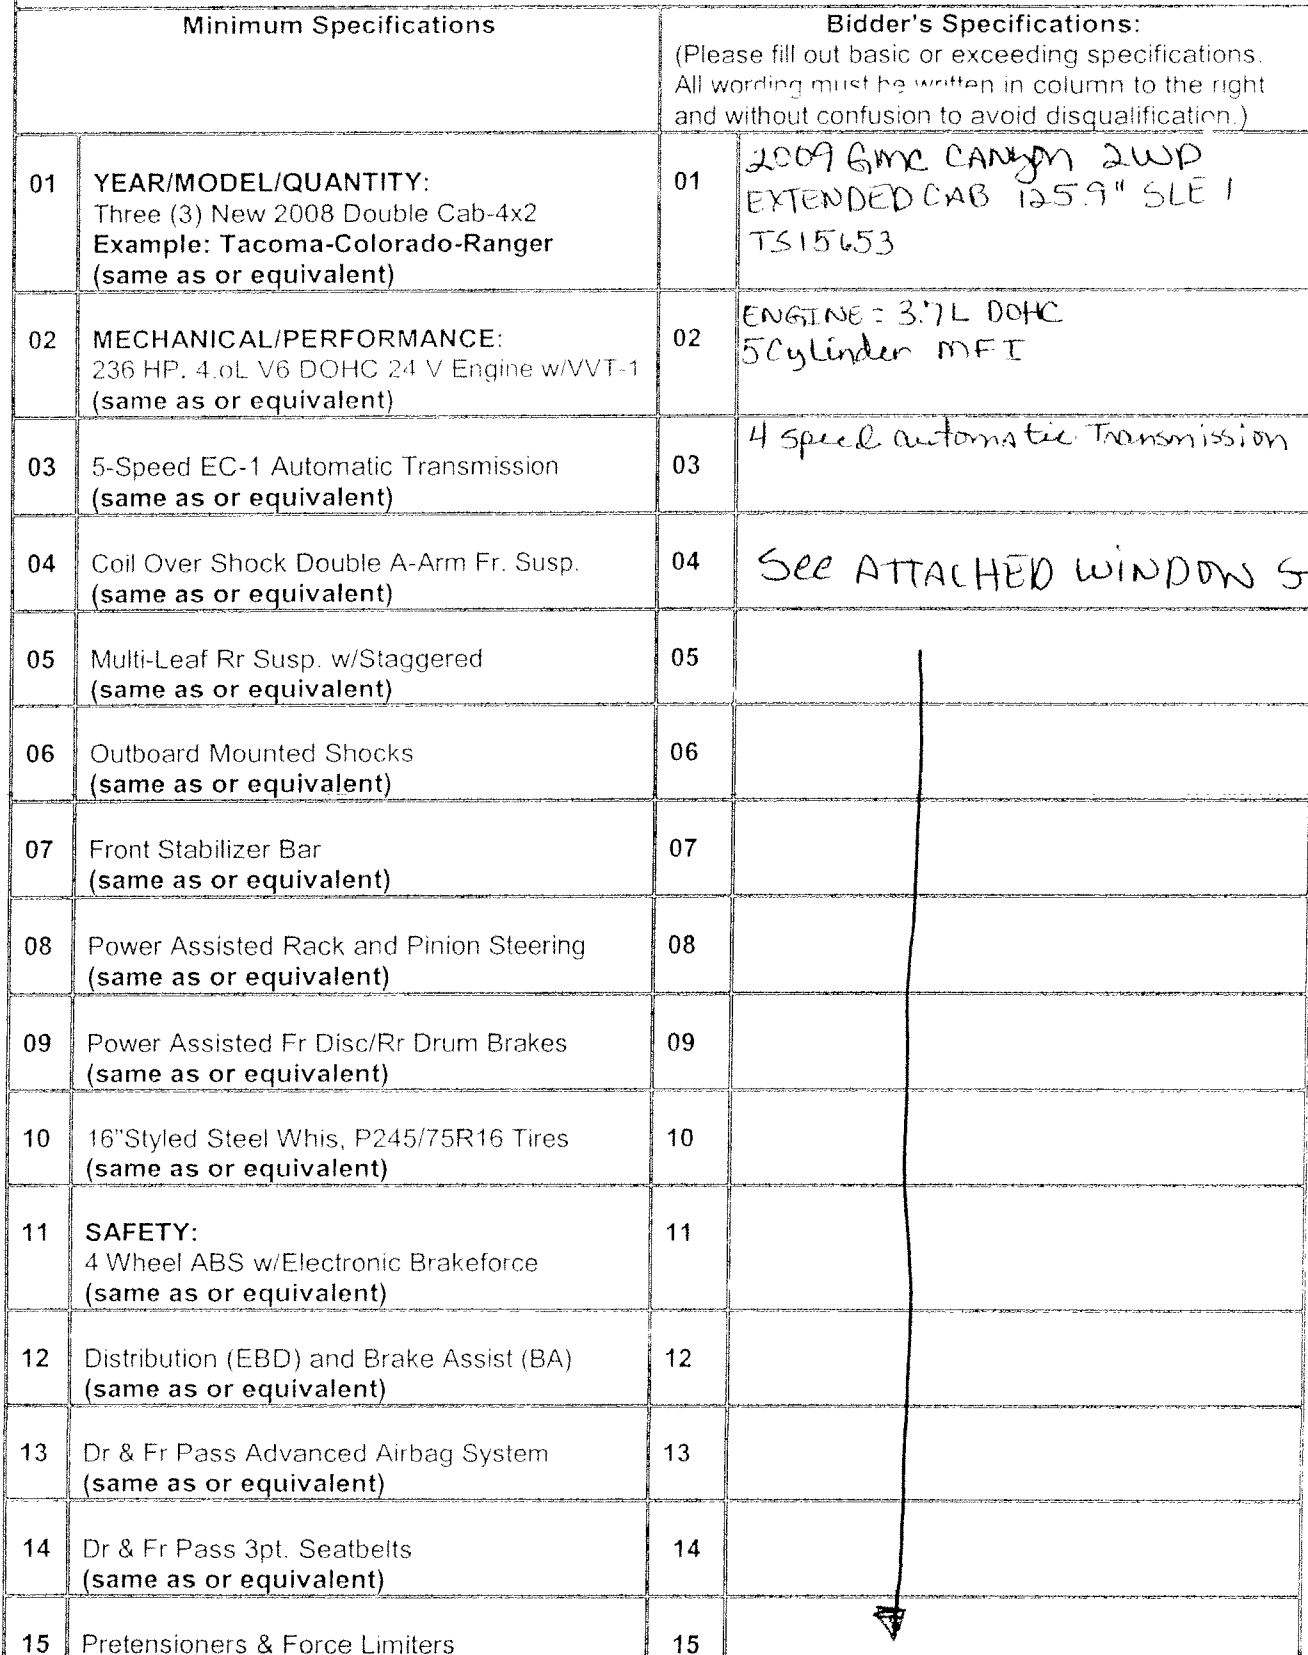 Minimum Specifications
Bidder's Specifications:
(Please fill out basic or exceeding specifications.
All wording must be written in column to the right
and without confusion to avoid disqualification.)
01
YEAR/MODEL/QUANTITY:
Three (3) New 2008 Double Cab-4x2
Example: Tacoma-Colorado-Ranger
(same as or equivalent)
01
2009 GMC CANYON 2WD
EXTENDED CAB 125.9" SLE 1
TS15653
02
MECHANICAL/PERFORMANCE:
236 HP. 4.oL V6 DOHC 24 V Engine w/VVT-1
(same as or equivalent)
02
ENGINE = 3.7L DOHC
5 Cylinder MFI
03
5-Speed EC-1 Automatic Transmission
(same as or equivalent)
03
4 speed automatic Transmission
04
Coil Over Shock Double A-Arm Fr. Susp.
(same as or equivalent)
04
See ATTACHED WINDOW S
05
Multi-Leaf Rr Susp. w/Staggered
(same as or equivalent)
05
06
Outboard Mounted Shocks
(same as or equivalent)
06
07
Front Stabilizer Bar
(same as or equivalent)
07
08
Power Assisted Rack and Pinion Steering
(same as or equivalent)
08
09
Power Assisted Fr Disc/Rr Drum Brakes
(same as or equivalent)
09
10
16"Styled Steel Whis, P245/75R16 Tires
(same as or equivalent)
10
11
SAFETY:
4 Wheel ABS w/Electronic Brakeforce
(same as or equivalent)
11
12
Distribution (EBD) and Brake Assist (BA)
(same as or equivalent)
12
13
Dr & Fr Pass Advanced Airbag System
(same as or equivalent)
13
14
Dr & Fr Pass 3pt. Seatbelts
(same as or equivalent)
14
15
Pretensioners & Force Limiters
15